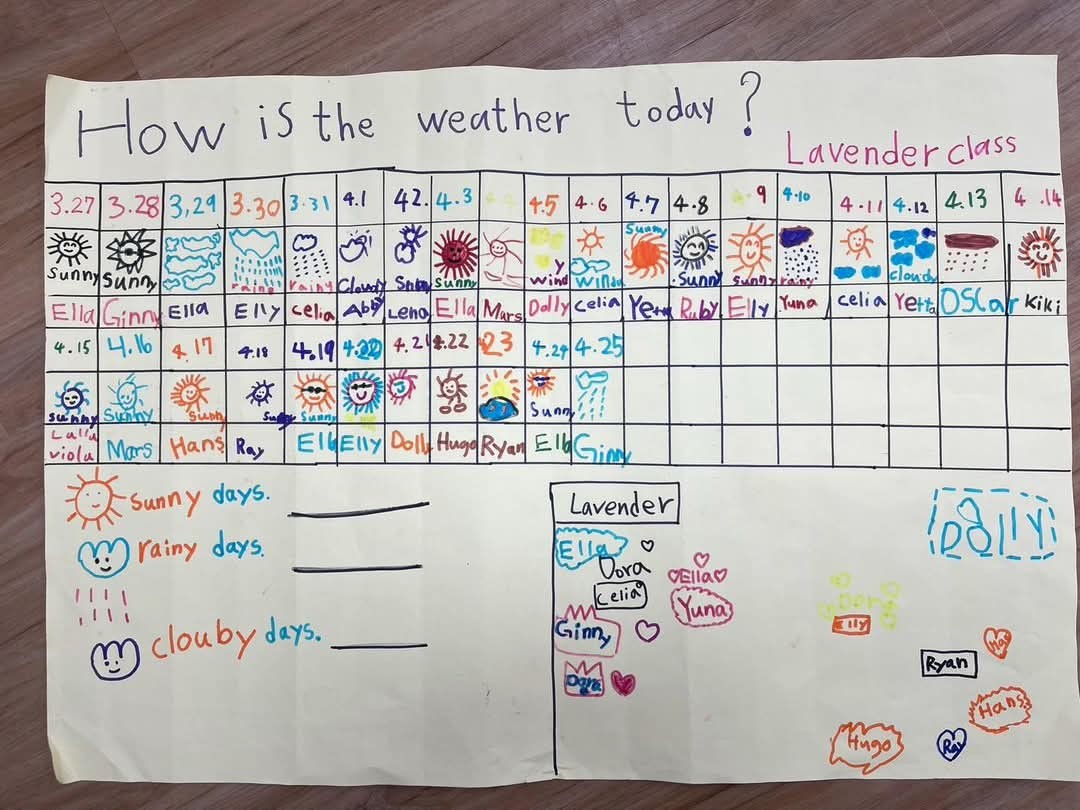 How is the weather today?
Lavender class
3.27 3.28 3,29 3.30 3.31 4.1 42. 4.3 4.4 4.5 4.6 4.7 4.8 4.9 4.10 4.11 4.12 4.13 4.14
Sunny Sunny rainy rainy Cloudy Sunny wind y windy Sunny Sunny sunny rainy cloudy
Ella Ginny Ella Elly celia Abby Lena Ella Mars Dolly celia Yetta Ruby Elly Yuna celia Yetta OSCar Kiki
4.15 4.16 4.17 4.18 4.19 4.20 4.21 4.22 23 4.24 4.25
sunny Sunny Sunny Sunny Sunny
Lalla viola Mars Hans Ray Ella Elly Dolly Hugo Ryan Ella Ginny
sunny days.
rainy days.
clouby days.
Lavender
Ella
Dora
Celia
Ella
Yuna
Ginny
Dora
DOllY
Dora
Elly
Ryan
Hans
Hugo
Ray